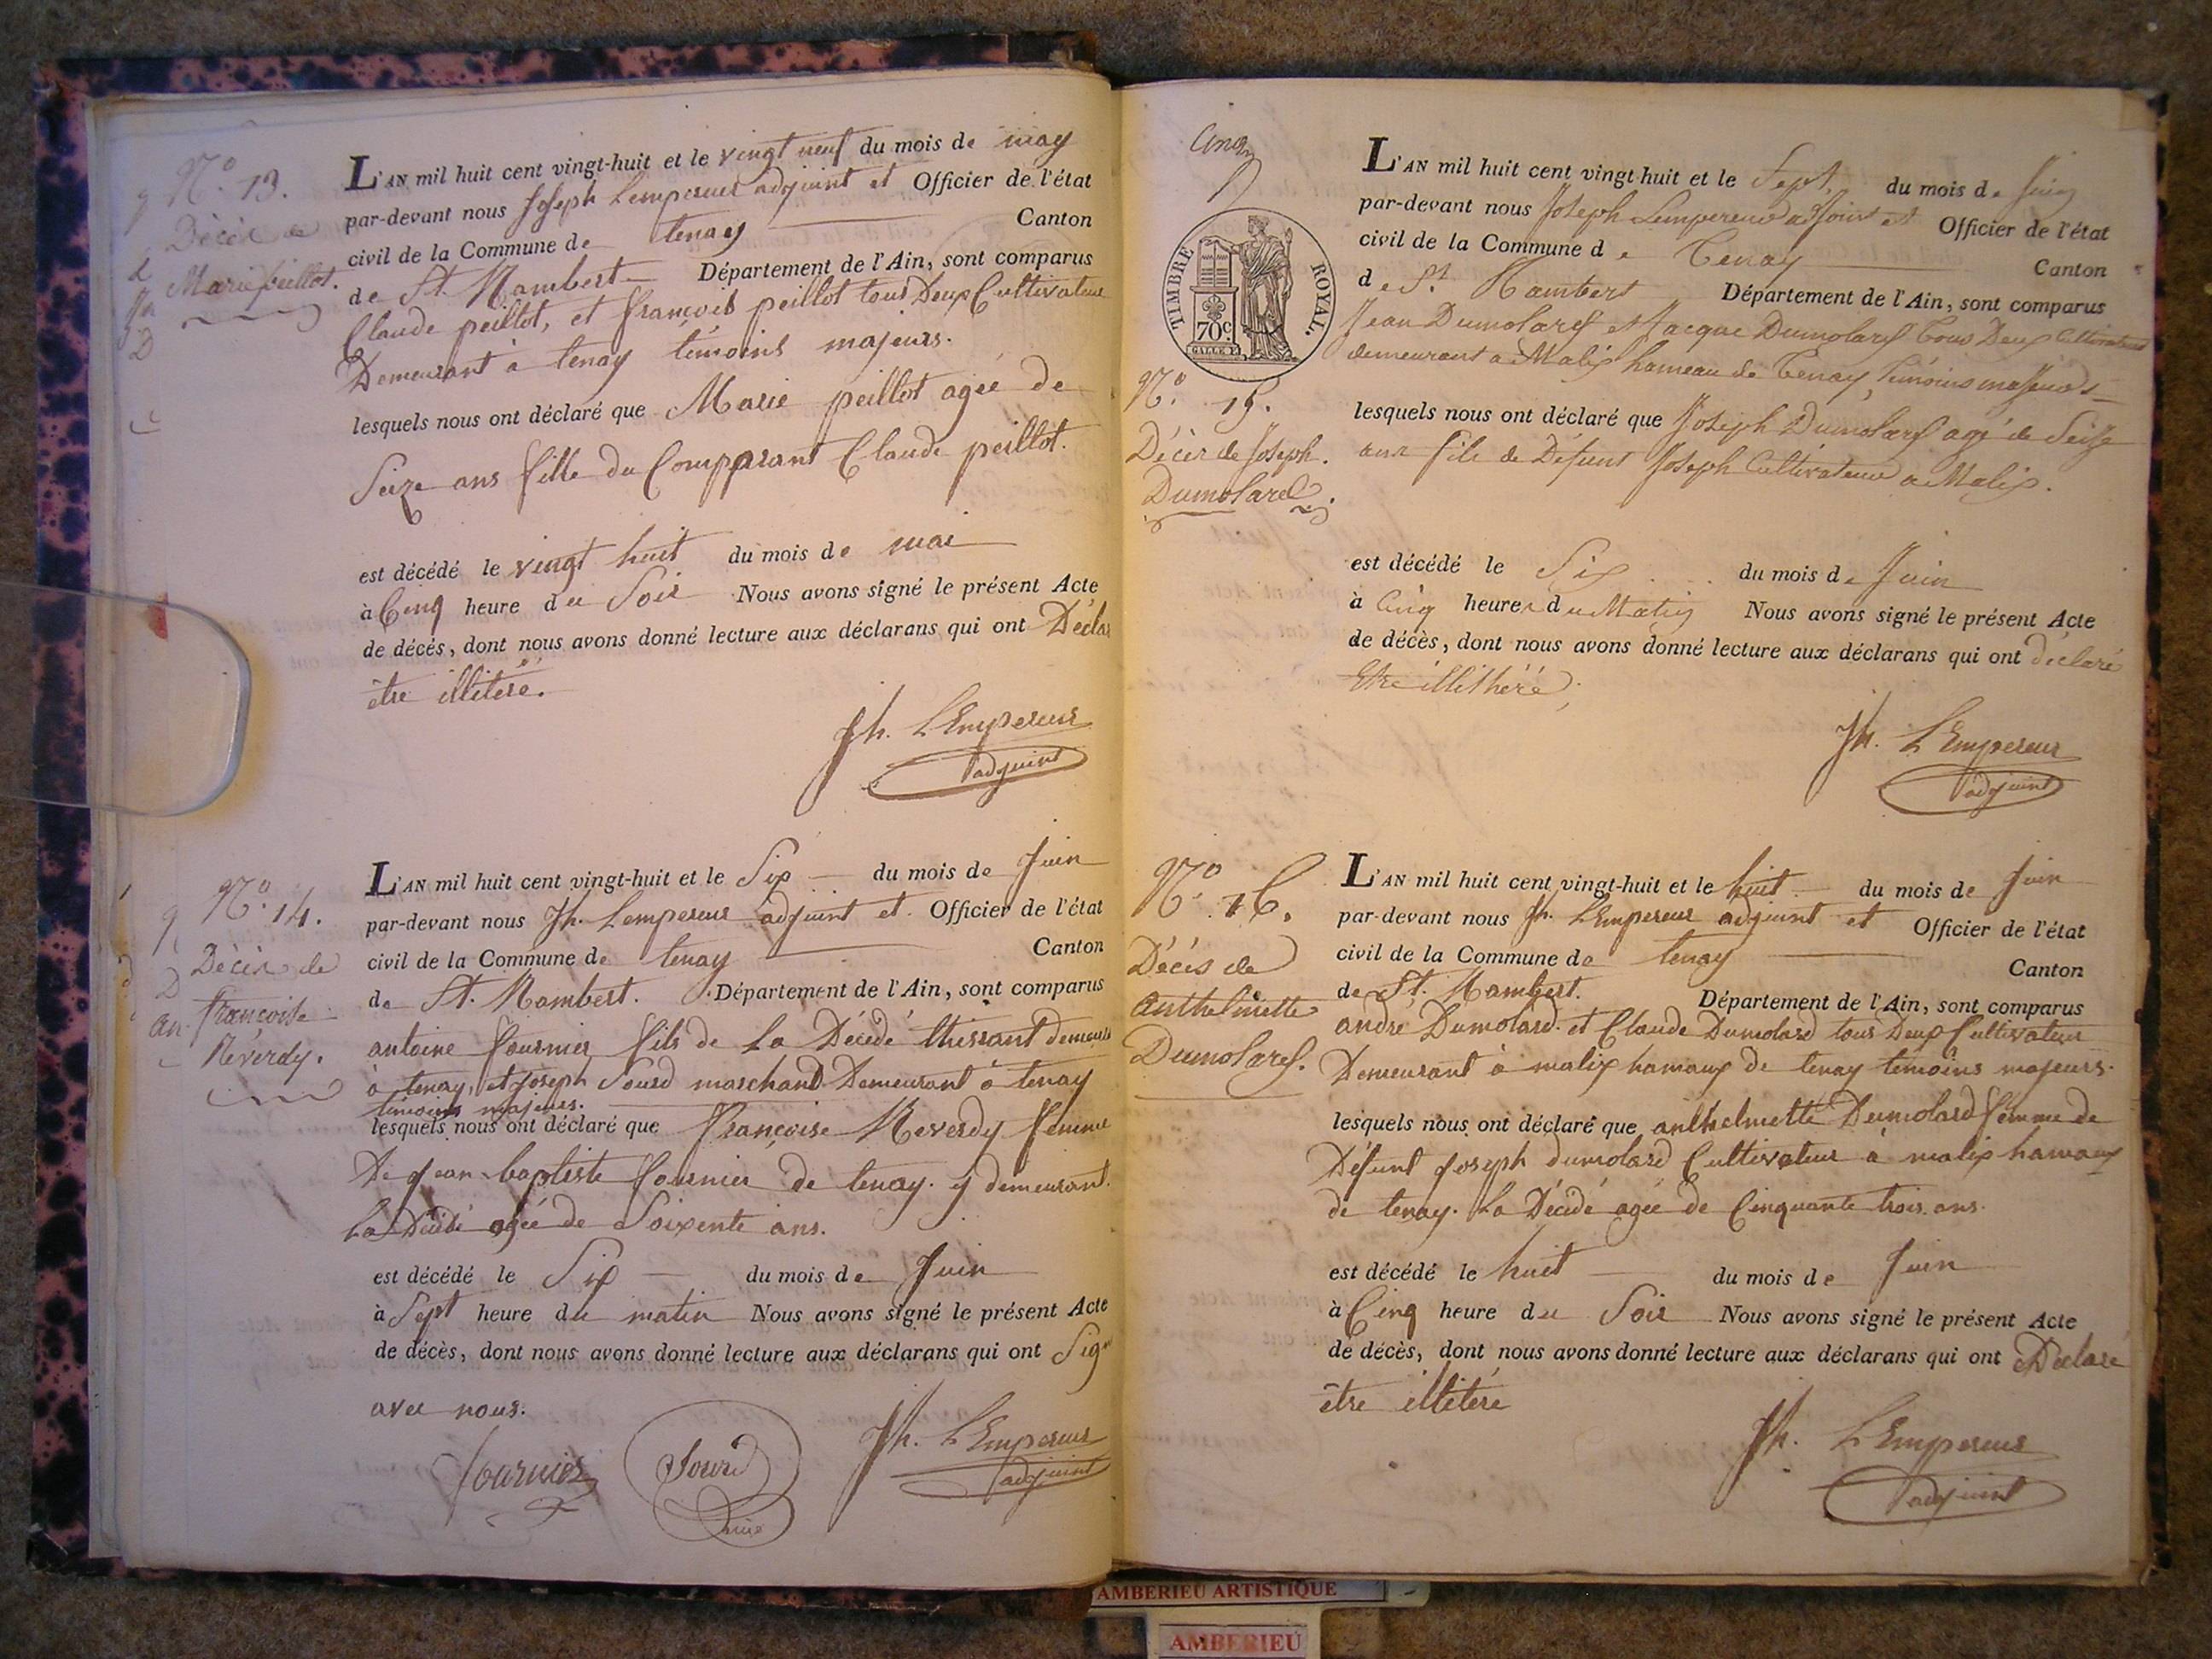 N.o 13.
Décès de
Marie peillot.
L'AN mil huit cent vingt-huit et le vingt neuf du mois de may
par-devant nous Joseph Lempereur adjoint et Officier de l'état
civil de la Commune de tenay Canton
de St. Rambert Département de l'Ain, sont comparus
Claude peillot, et françois peillot tous Deux Cultivateur
Demeurant à tenay témoins majeurs.
lesquels nous ont déclaré que Marie peillot agée de
Seize ans fille du Comparant Claude peillot.
est décédé le vingt huit du mois de mai
à Cinq heure du Soir Nous avons signé le présent Acte
de décés, dont nous avons donné lecture aux déclarans qui ont Déclar
être illitéré.
Jh. LEmpereur
adjoint
N.o 14.
Décès de
françoise
Réverdy.
L'AN mil huit cent vingt-huit et le Six du mois de Juin
par-devant nous Jh. Lempereur adjoint et Officier de l'état
civil de la Commune de tenay Canton
de St. Rambert. Département de l'Ain, sont comparus
antoine fournier fils de La Décédé thissrant demeura
à tenay, et Joseph Sourd marchand Demeurant à tenay
témoins majeurs.
lesquels nous ont déclaré que françoise Reverdy femme
de Jean baptiste fournier de tenay. y demeurant.
La Décédé agée de Soixente ans.
est décédé le Six du mois de Juin
à Sept heure du matin Nous avons signé le présent Acte
de décès, dont nous avons donné lecture aux déclarans qui ont Sign
avec nous.
fournier
Sourd
Jh. LEmpereur
adjoint
Cinq
TIMBRE ROYAL.
70c
N.o 15.
Décès de Joseph.
Dumolard.
L'AN mil huit cent vingt-huit et le Sept. du mois de Juin
par-devant nous Joseph Lempereur adjoint et Officier de l'état
civil de la Commune de Tenay Canton
de St. Rambert Département de l'Ain, sont comparus
Jean Dumolard et Jacque Dumolard tous Deux Cultivateurs
demeurant a Malix hameau de Tenay, témoins majeurs
lesquels nous ont déclaré que Joseph Dumolard agé de Seize
ans fils de Défunt Joseph Cultivateur a Malix.
est décédé le Six du mois de Juin
à Cinq heures du Matin Nous avons signé le présent Acte
de décès, dont nous avons donné lecture aux déclarans qui ont déclaré
Etre illithéré;
Jh. LEmpereur
adjoint
N.o 16.
Décès de
anthelmette
Dumolard.
L'AN mil huit cent vingt-huit et le huit du mois de Juin
par-devant nous Jh. LEmpereur adjoint et Officier de l'état
civil de la Commune de tenay Canton
de St. Rambert. Département de l'Ain, sont comparus
andré Dumolard. et Claude Dumolard tous Deux Cultivateur
Demeurant à malix hamaux de tenay temoins majeurs.
lesquels nous ont déclaré que anthelmette Dumolard femme de
Défunt Joseph dumolard Cultivateur à malix hamaux
de tenay. La Décédé agée de Cinquante trois ans.
est décédé le huit du mois de Juin
à Cinq heure du Soir Nous avons signé le présent Acte
de décès, dont nous avons donné lecture aux déclarans qui ont Déclaré
être illitéré
Jh. LEmpereur
adjoint
AMBERIEU ARTISTIQUE
AMBERIEU